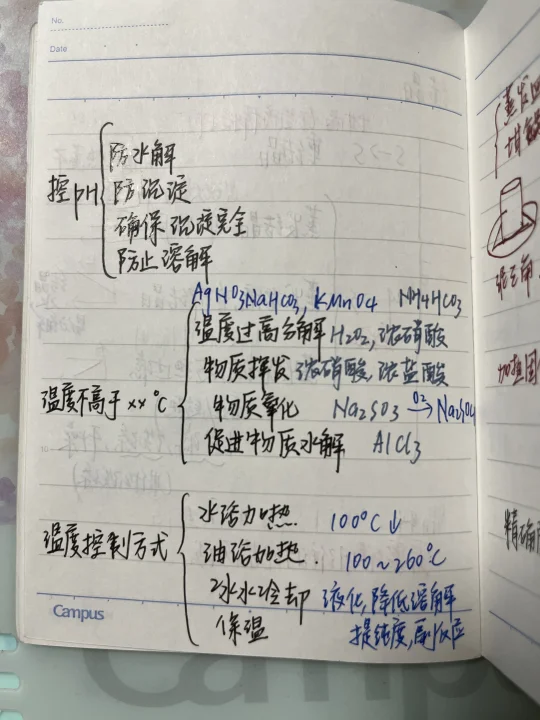 No.
Date
控pH
防水解
防沉淀
确保沉淀完全
防止溶解
温度不高于××℃
AgNO3 NaHCO3, KMnO4 NH4HCO3
温度过高分解 H2O2, 浓硝酸
物质挥发 浓硝酸, 浓盐酸
物质氧化 Na2SO3 O2→ Na2SO4
促进物质水解 AlCl3
温度控制方式
水浴加热 100℃↓
油浴加热. 100~260℃
冰水冷却 液化, 降低溶解
保温 提纯度, 副反应
Campus
蒸发皿
坩埚
泥三角
加热固
精确
Camp